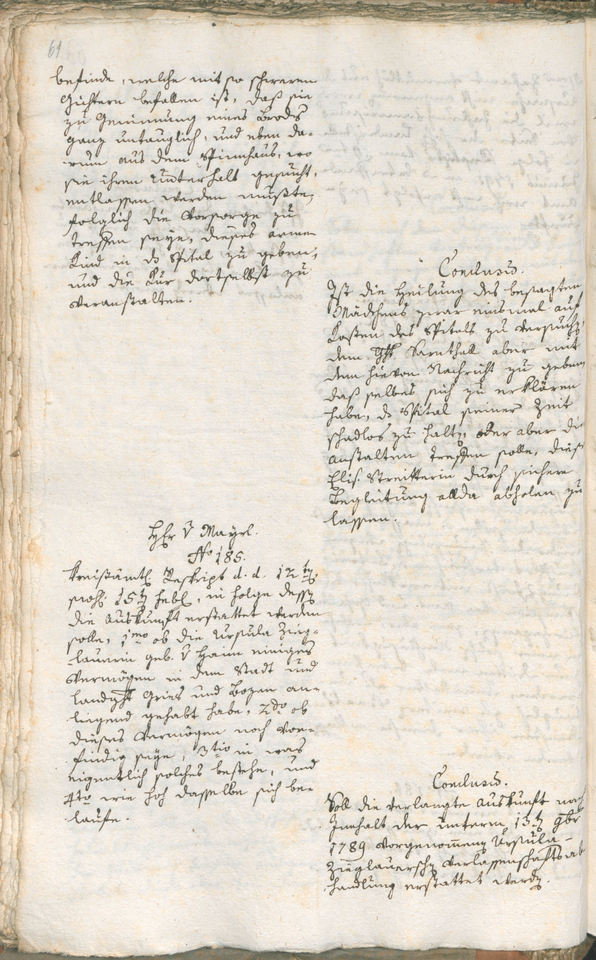 61
befinde, welche mit so schweren
Gichtern befallen ist, daß sie
zu Gewinnung eines Brods
ganz untauglich, und eben da-
rum aus dem Spinnhaus, wo
sie ihren Unterhalt gesucht,
entlassen werden mußte,
folglich die Vorsorge zu
treffen seye, dieses arme
Kind in ds Spital zu geben,
und die Kur dortselbst zu
veranstalten.
Conclusū.
Ist die Heilung des besagten
Mädchens zwar einsmal auf
Kosten des Spitals zu versuchen,
dem Ghft Sarnthall aber mit
dem hievon Nachricht zu geben,
daß selbes sich zu erklären
habe, ds Spital seiner Zeit
schadlos zu halten, oder aber die
Anstalten treffen solle, diese
Elis. Streitterin durch sichere
Begleitung allda abholen zu
lassen.
Hr v Mayrl.
No 185.
Kreisämtl. Reskript d. d. 12ten,
15ten hebl, in folge dessen
die Auskunft erstattet werden
solle, 1mo ob die Ursula Zieg-
lauerin geb. v Hann einiges
Vermögen in dem Stadt und
Landght Gries und Bozen an-
liegend gehabt habe, 2do ob
dieses Vermögen noch vor-
findig seye, 3tio in was
eigentlich solches bestehe, und
4to wie hoch dasselbe sich be-
laufe.
Conclusū.
Soll die verlangte Auskunft nach
Innhalt der unterm 13ten 9br
1789 vorgenommenen Ursula-
Zieglauerschen Verlassenschaftsab-
handlung erstattet werden.